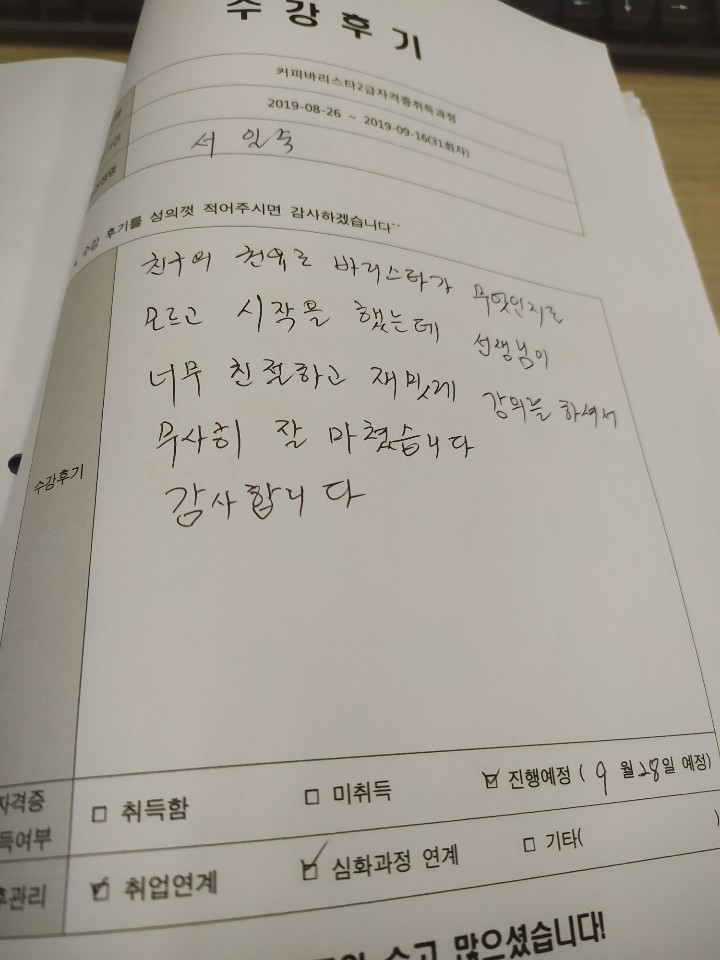 수강후기
커피바리스타2급자격증취득과정
2019-08-26 ~ 2019-09-16(31회차)
서 일숙
수강 후기를 성의껏 적어주시면 감사하겠습니다^^
수강후기
친구의 권유로 바리스타가 무엇인지도
모르고 시작을 했는데 선생님이
너무 친절하고 재밋게 강의를 하셔서
무사히 잘 마쳤습니다
감사합니다
자격증
득여부
□ 취득함 □ 미취득 ☑ 진행예정 ( 9 월 28일 예정)
후관리
☑ 취업연계 ☑ 심화과정 연계 □ 기타( )
수고 많으셨습니다!